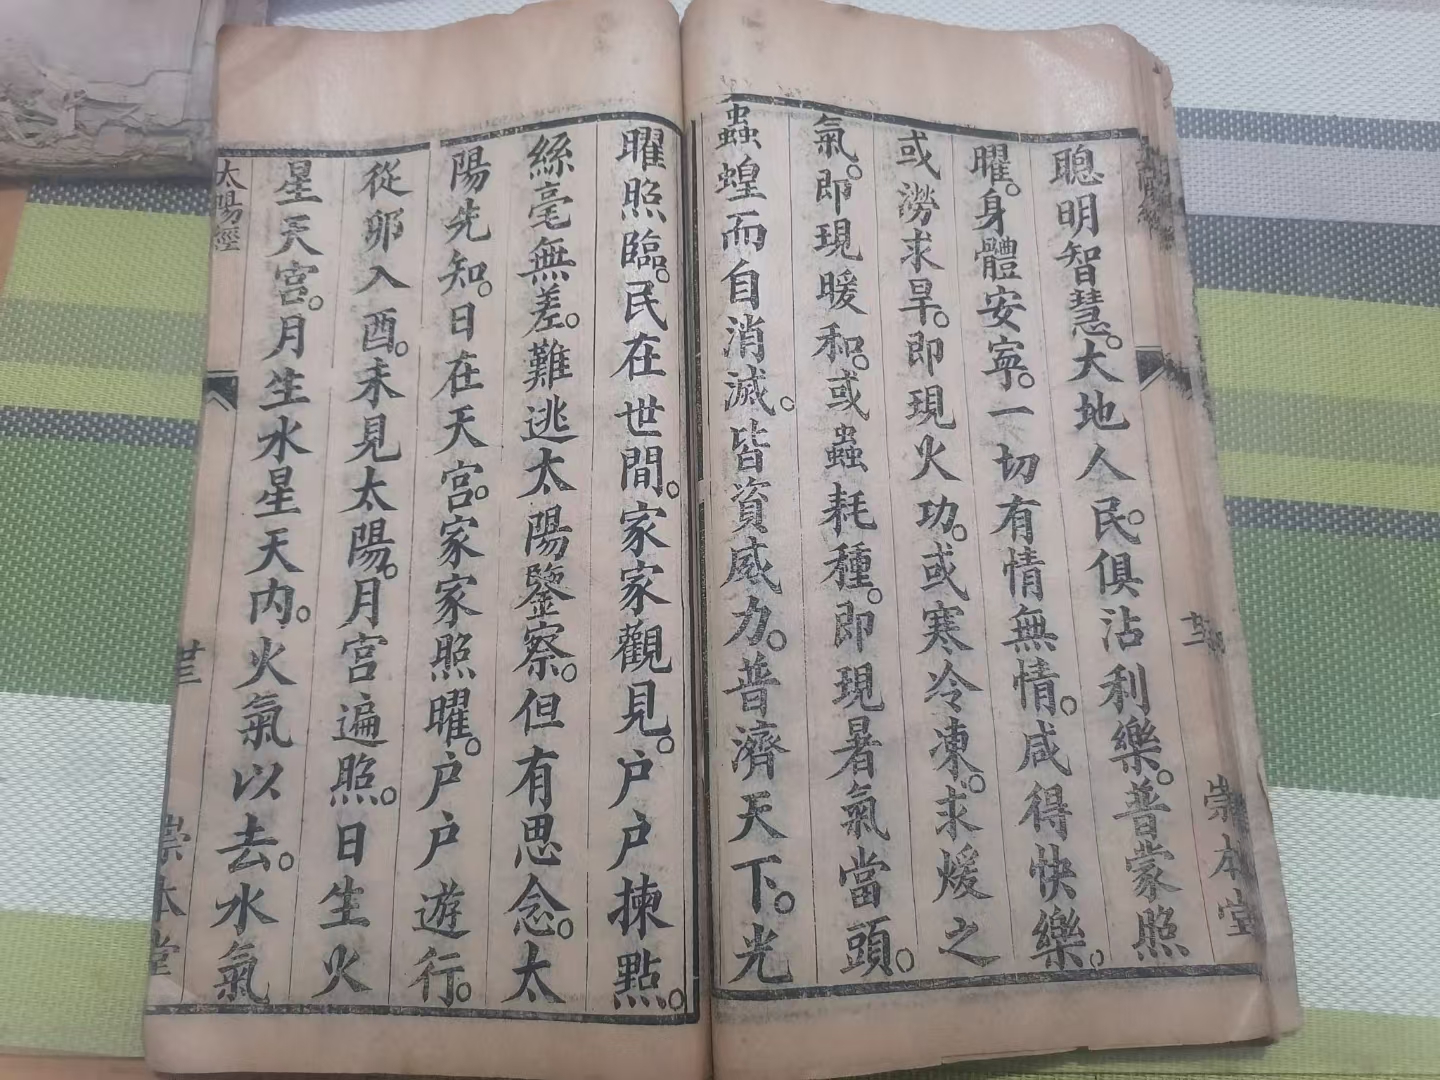 聰明智慧。大地人民。俱沾利樂。普蒙照
曜。身體安寧。一切有情無情。咸得快樂。
或澇求旱。即現火功。或寒冷凍。求煖之
氣。即現暖和。或蟲耗種。即現暑氣當頭。
蟲蝗而自消滅。皆資威力。普濟天下。光
曜照臨。民在世間。家家觀見。户户揀點。
絲毫無差。難逃太陽鑒察。但有思念。太
陽先知。日在天宮。家家照曜。户户遊行。
從卯入酉。未見太陽。月宮遍照。日生火
星天宮。月生水星天内。火氣以去。水氣
太陽經
廿三
崇本堂
崇本堂